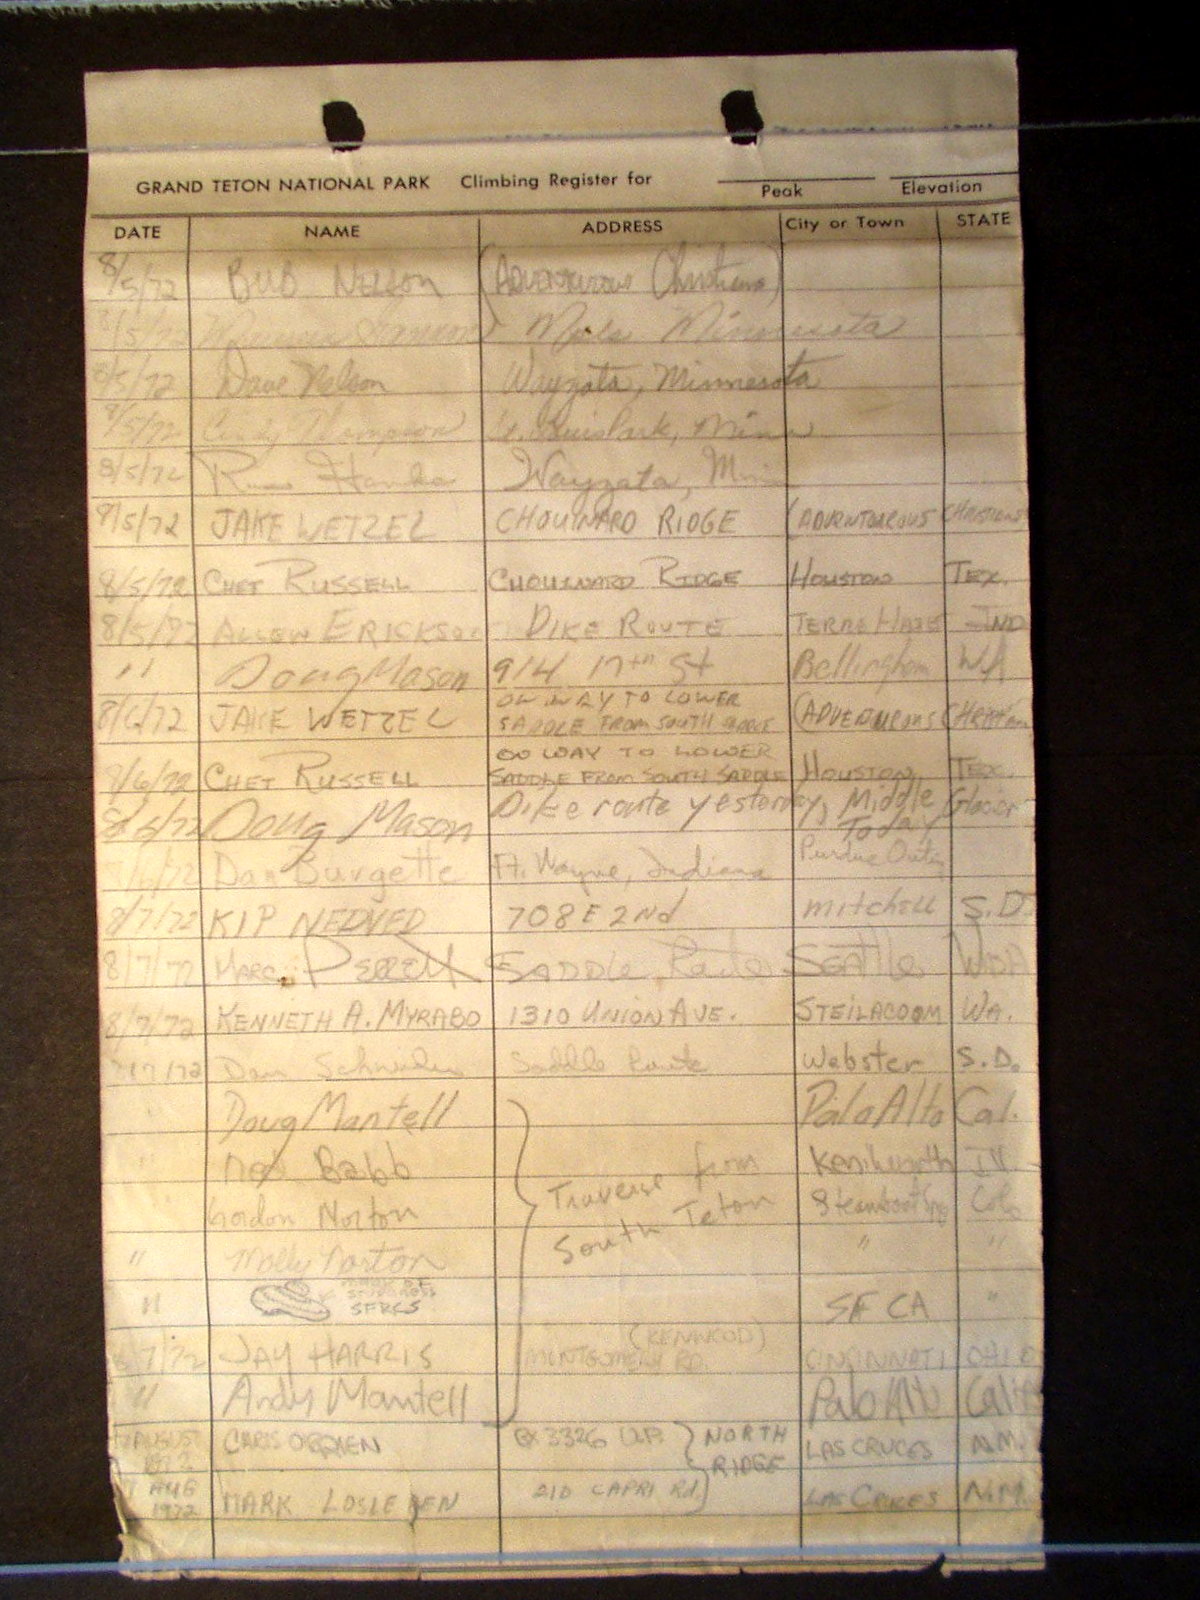 GRAND TETON NATIONAL PARK Climbing Register for
Peak Elevation
DATE NAME ADDRESS City or Town STATE
8/5/72 BUB NELSON (ADVENTUROUS Christians)
8/5/72 Minnesota
8/5/72 Dave Nelson Wayzata, Minnesota
8/5/72 Cindy Thompson St. Louis Park, Minn
8/5/72 Russ Wayzata, Minn
8/5/72 JAKE WETZEL CHOUINARD RIDGE (ADVENTUROUS CHRISTIANS)
8/5/72 CHET RUSSELL CHOUINARD RIDGE HOUSTON TEX.
8/5/72 ALLEN ERICKSON DIKE ROUTE TERRE HAUTE IND
" Doug Mason 914 17th St Bellingham WA
8/6/72 JAKE WETZEL ON WAY TO LOWER
SADDLE FROM SOUTH SADDLE (ADVENTUROUS CHRISTIANS
8/6/72 CHET RUSSELL ON WAY TO LOWER
SADDLE FROM SOUTH SADDLE HOUSTON, TEX.
Doug Mason Dike route yesterday, Middle Glacier
Today
8/6/72 Dan Burgette Ft. Wayne, Indiana Purdue Outing
8/7/72 KIP NEDVED 708 E 2Nd mitchell S.D.
8/7/72 MARC SADDLE Route SEATTLE
8/7/72 KENNETH A. MYRABO 1310 UNION AVE. STEILACOOM WA.
8/7/72 Dan Schneider Saddle Route Webster S.D.
" Doug Mantell Palo Alto Cal.
" Ned Babb Traverse from Kenilworth Ill.
" Gordon Norton South Teton Steamboat Spg Colo
" Molly Norton " "
" SFRCS SF CA "
8/7/72 JAY HARRIS (KENWOOD)
MONTGOMERY RD. CINCINNATI OHIO
" Andy Mantell Palo Alto Calif
7 AUGUST
1972 CHRIS OBRIEN BX 3326 U.P. NORTH
RIDGE LAS CRUCES N.M.
7 AUG
1972 MARK LOSLEBEN 210 CAPRI Rd LAS CRUCES N.M.